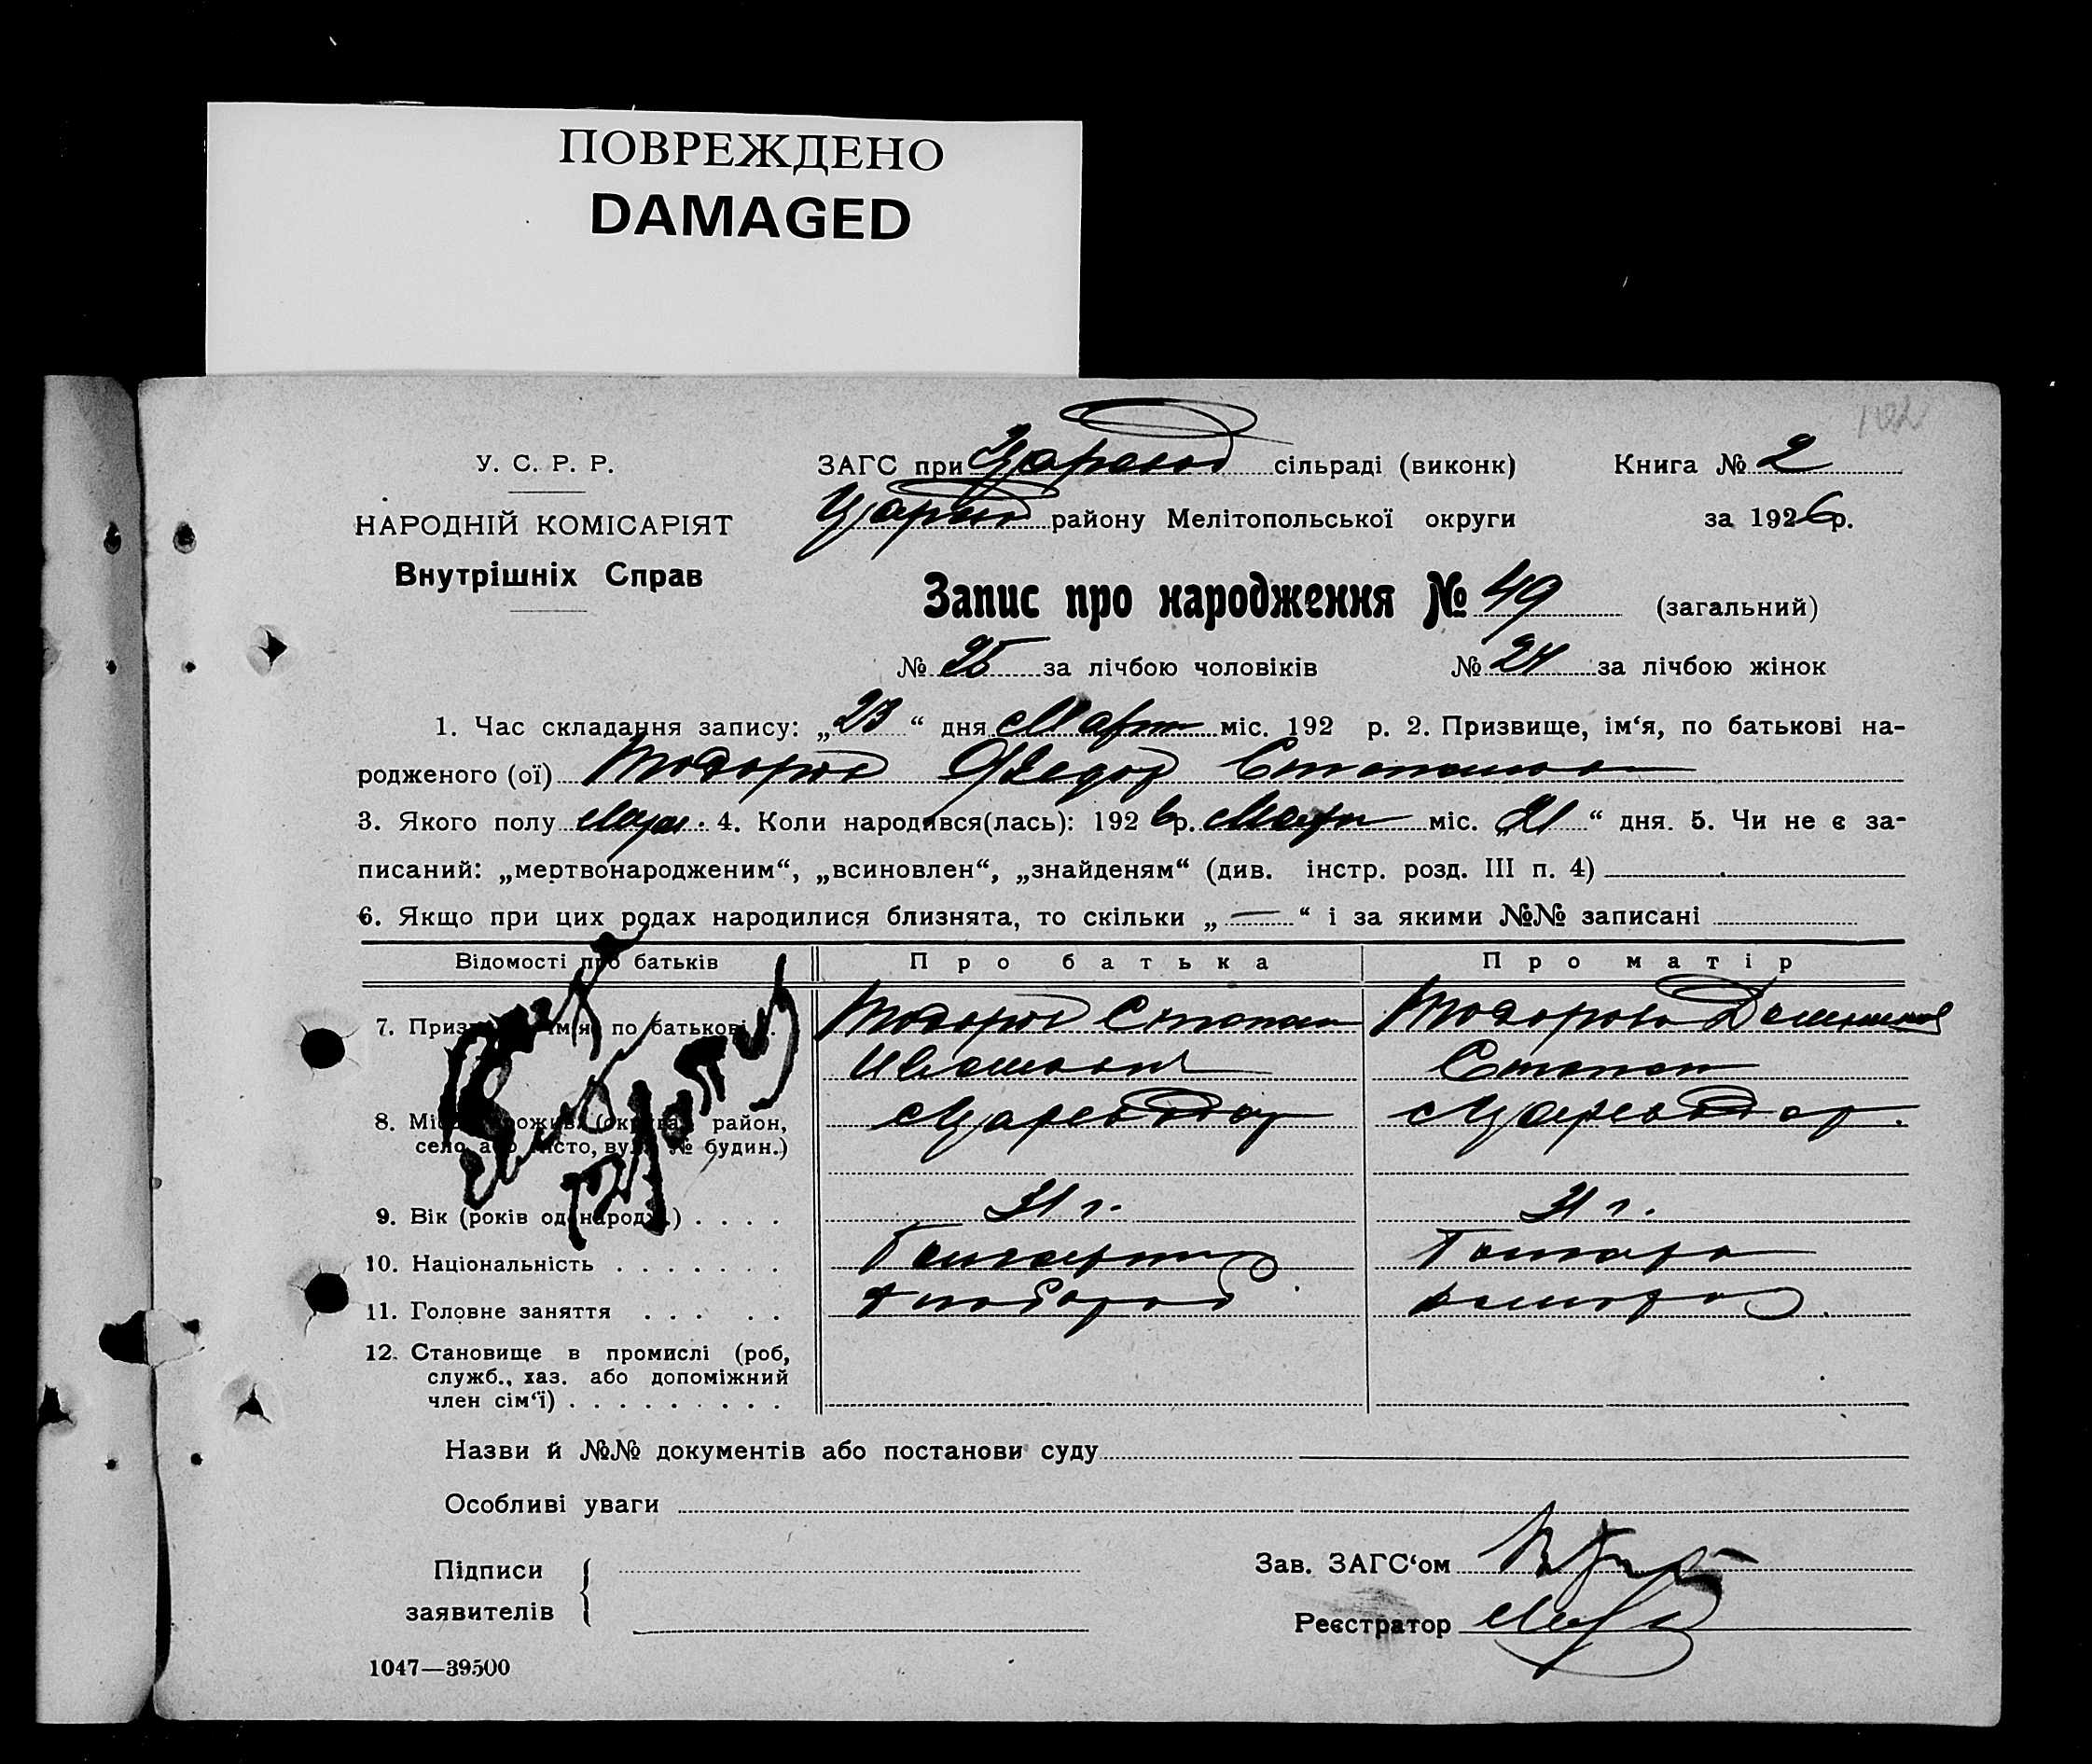 ПОВРЕЖДЕНО
DAMAGED
102
У. С. Р. Р.
НАРОДНІЙ КОМІСАРІЯТ
Внутрішніх Справ
ЗАГС при сільраді (виконк)
Книга № 2
району Мелітопольської округи
за 1926 р.
Запис про народження № 49 (загальний)
№ 25 за лічбою чоловіків № 24 за лічбою жінок
1. Час складання запису: „23“ дня Март міс. 192 р. 2. Призвище, ім‘я, по батькові на-
родженого (ої) Тодоров Федор Степанов
3. Якого полу муж. 4. Коли народився(лась): 1926 р. Март міс. „21“ дня. 5. Чи не є за-
писаний: „мертвонародженим“, „всиновлен“, „знайденям“ (див. інстр. розд. III п. 4)
6. Якщо при цих родах народилися близнята, то скільки „—“ і за якими №№ записані
Відомості про батьків Про батька Про матір
7. Призвище, ім‘я, по батькові Тодоров Степан Тодорова
Степан
8. Місце прожив. (округа, район, Цареводар Цареводар.
село або місто, вул. № будин.)
9. Вік (років од народж.) . . . . 31 г. 31 г.
10. Національність . . . . . . .
11. Головне заняття . . . . .
12. Становище в промислі (роб,
служб., хаз. або допоміжний
член сім‘ї) . . . . . . . . .
Назви й №№ документів або постанови суду
Особливі уваги
Підписи
заявителів
Зав. ЗАГС‘ом
Реєстратор
1047—39500